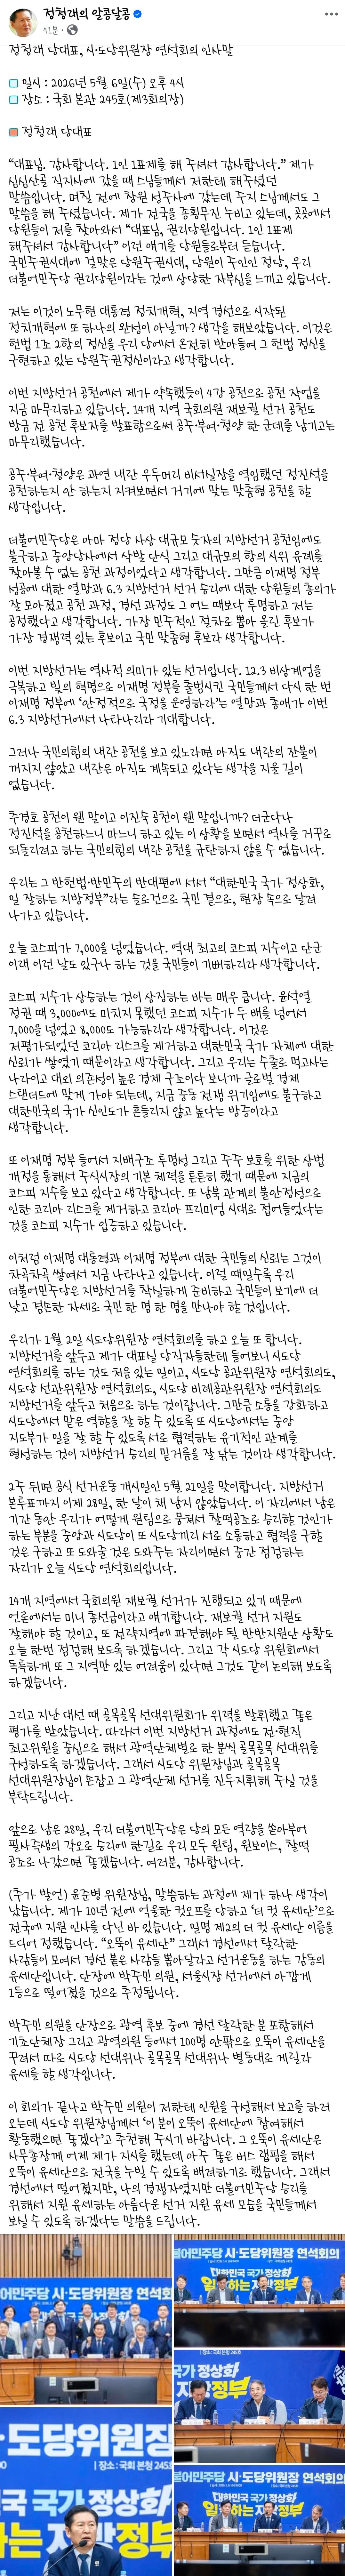 정청래의 알콩달콩
41분
정청래 당대표, 시·도당위원장 연석회의 인사말
일시 : 2026년 5월 6일(수) 오후 4시
장소 : 국회 본관 245호(제3회의장)
정청래 당대표
“대표님, 감사합니다. 1인 1표제를 해 주셔서 감사합니다.” 제가
심심산골 직지사에 갔을 때 스님들께서 저한테 해주셨던
말씀입니다. 며칠 전에 창원 성주사에 갔는데 주지 스님께서도 그
말씀을 해 주셨습니다. 제가 전국을 종횡무진 누비고 있는데, 곳곳에서
당원들이 저를 찾아와서 “대표님, 권리당원입니다. 1인 1표제
해주셔서 감사합니다” 이런 얘기를 당원들로부터 듣습니다.
국민주권시대에 걸맞은 당원주권시대, 당원이 주인인 정당, 우리
더불어민주당 권리당원이라는 것에 상당한 자부심을 느끼고 있습니다.
저는 이것이 노무현 대통령 정치개혁, 지역 경선으로 시작된
정치개혁에 또 하나의 완성이 아닐까? 생각을 해보았습니다. 이것은
헌법 1조 2항의 정신을 우리 당에서 온전히 받아들여 그 헌법 정신을
구현하고 있는 당원주권정신이라고 생각합니다.
이번 지방선거 공천에서 제가 약속했듯이 4강 공천으로 공천 작업을
지금 마무리하고 있습니다. 14개 지역 국회의원 재보궐 선거 공천도
방금 전 공천 후보자를 발표함으로써 공주·부여·청양 한 군데를 남기고는
마무리했습니다.
공주·부여·청양은 과연 내란 우두머리 비서실장을 역임했던 정진석을
공천하는지 안 하는지 지켜보면서 거기에 맞는 맞춤형 공천을 할
생각입니다.
더불어민주당은 아마 정당 사상 대규모 숫자의 지방선거 공천임에도
불구하고 중앙당사에서 삭발 단식 그리고 대규모의 항의 시위 유례를
찾아볼 수 없는 공천 과정이었다고 생각합니다. 그만큼 이재명 정부
성공에 대한 열망과 6.3 지방선거 선거 승리에 대한 당원들의 총의가
잘 모아졌고 공천 과정, 경선 과정도 그 어느 때보다 투명하고 저는
공정했다고 생각합니다. 가장 민주적인 절차로 뽑아 올린 후보가
가장 경쟁력 있는 후보이고 국민 맞춤형 후보라 생각합니다.
이번 지방선거는 역사적 의미가 있는 선거입니다. 12.3 비상계엄을
극복하고 빛의 혁명으로 이재명 정부를 출범시킨 국민들께서 다시 한 번
이재명 정부에 ‘안정적으로 국정을 운영하라’는 열망과 총애가 이번
6.3 지방선거에서 나타나리라 기대합니다.
그러나 국민의힘의 내란 공천을 보고 있노라면 아직도 내란의 잔불이
꺼지지 않았고 내란은 아직도 계속되고 있다는 생각을 지울 길이
없습니다.
추경호 공천이 웬 말이고 이진숙 공천이 웬 말입니까? 더군다나
정진석을 공천하느니 마느니 하고 있는 이 상황을 보면서 역사를 거꾸로
되돌리려고 하는 국민의힘의 내란 공천을 규탄하지 않을 수 없습니다.
우리는 그 반헌법·반민주의 반대편에 서서 “대한민국 국가 정상화,
일 잘하는 지방정부”라는 슬로건으로 국민 곁으로, 현장 속으로 달려
나가고 있습니다.
오늘 코스피가 7,000을 넘었습니다. 역대 최고의 코스피 지수이고 단군
이래 이런 날도 있구나 하는 것을 국민들이 기뻐하리라 생각합니다.
코스피 지수가 상승하는 것이 상징하는 바는 매우 큽니다. 윤석열
정권 때 3,000에도 미치지 못했던 코스피 지수가 두 배를 넘어서
7,000을 넘었고 8,000도 가능하리라 생각합니다. 이것은
저평가되었던 코리아 리스크를 제거하고 대한민국 국가 자체에 대한
신뢰가 쌓였기 때문이라고 생각합니다. 그리고 우리는 수출로 먹고사는
나라이고 대외 의존성이 높은 경제 구조이다 보니까 글로벌 경제
스탠더드에 맞게 가야 되는데, 지금 중동 전쟁 위기임에도 불구하고
대한민국의 국가 신인도가 흔들리지 않고 높다는 방증이라고
생각합니다.
또 이재명 정부 들어서 지배구조 투명성 그리고 주주 보호를 위한 상법
개정을 통해서 주식시장의 기본 체력을 튼튼히 했기 때문에 지금의
코스피 지수를 보고 있다고 생각합니다. 또 남북 관계의 불안정성으로
인한 코리아 리스크를 제거하고 코리아 프리미엄 시대로 접어들었다는
것을 코스피 지수가 입증하고 있습니다.
이처럼 이재명 대통령과 이재명 정부에 대한 국민들의 신뢰는 그것이
차곡차곡 쌓여서 지금 나타나고 있습니다. 이럴 때일수록 우리
더불어민주당은 지방선거를 착실하게 준비하고 국민들이 보기에 더
낮고 겸손한 자세로 국민 한 명 한 명을 만나야 할 것입니다.
우리가 1월 2일 시도당위원장 연석회의를 하고 오늘 또 합니다.
지방선거를 앞두고 제가 대표실 당직자들한테 들어보니 시도당
연석회의를 하는 것도 처음 있는 일이고, 시도당 공관위원장 연석회의도,
시도당 선관위원장 연석회의도, 시도당 비례공관위원장 연석회의도
지방선거를 앞두고 처음으로 하는 것이랍니다. 그만큼 소통을 강화하고
시도당에서 맡은 역할을 잘 할 수 있도록 또 시도당에서는 중앙
지도부가 일을 잘 할 수 있도록 서로 협력하는 유기적인 관계를
형성하는 것이 지방선거 승리의 밑거름을 잘 닦는 것이라 생각합니다.
2주 뒤면 공식 선거운동 개시일인 5월 21일을 맞이합니다. 지방선거
본투표까지 이제 28일, 한 달이 채 남지 않았습니다. 이 자리에서 남은
기간 동안 우리가 어떻게 원팀으로 뭉쳐서 찰떡공조로 승리할 것인가
하는 부분을 중앙과 시도당이 또 시도당끼리 서로 소통하고 협력을 구할
것은 구하고 또 도와줄 것은 도와주는 자리이면서 중간 점검하는
자리가 오늘 시도당 연석회의입니다.
14개 지역에서 국회의원 재보궐 선거가 진행되고 있기 때문에
언론에서는 미니 총선급이라고 얘기합니다. 재보궐 선거 지원도
잘해야 할 것이고, 또 전략지역에 파견해야 될 제반지원단 상황도
오늘 한번 점검해 보도록 하겠습니다. 그리고 각 시도당 위원회에서
독특하게 또 그 지역만 있는 어려움이 있다면 그것도 같이 논의해 보도록
하겠습니다.
그리고 지난 대선 때 골목골목 선대위원회가 위력을 발휘했고 좋은
평가를 받았습니다. 따라서 이번 지방선거 과정에도 전·현직
최고위원을 중심으로 해서 광역단체별로 한 분씩 골목골목 선대위를
구성하도록 하겠습니다. 그래서 시도당 위원장님과 골목골목
선대위원장님이 손잡고 그 광역단체 선거를 진두지휘해 주실 것을
부탁드립니다.
앞으로 남은 28일, 우리 더불어민주당은 당의 모든 역량을 쏟아부어
필사즉생의 각오로 승리에 한길로 우리 모두 원팀, 원보이스, 찰떡
공조로 나갔으면 좋겠습니다. 여러분, 감사합니다.
(추가 발언) 윤준병 위원장님, 말씀하는 과정에 제가 하나 생각이
났습니다. 제가 10년 전에 억울한 컷오프를 당하고 ‘더 컷 유세단’으로
전국에 지원 인사를 다닌 바 있습니다. 일명 제2의 더 컷 유세단 이름을
드디어 정했습니다. “오뚝이 유세단” 그래서 경선에서 탈락한
사람들이 모여서 경선 붙은 사람들 뽑아달라고 선거운동을 하는 감동의
유세단입니다. 단장에 박주민 의원, 서울시장 선거에서 아깝게
1등으로 떨어졌을 것으로 추정됩니다.
박주민 의원을 단장으로 광역 후보 중에 경선 탈락한 분 포함해서
기초단체장 그리고 광역의원 등에서 100명 안팎으로 오뚝이 유세단을
꾸려서 따로 시도당 선대위나 골목골목 선대위나 별동대로 게릴라
유세를 할 생각입니다.
이 회의가 끝나고 박주민 의원이 저한테 인원을 구성해서 보고를 하러
오는데 시도당 위원장님께서 ‘이 분이 오뚝이 유세단에 참여해서
활동했으면 좋겠다’고 추천해 주시기 바랍니다. 그 오뚝이 유세단은
사무총장께 어제 제가 지시를 했는데 아주 좋은 버스 랩핑을 해서
오뚝이 유세단으로 전국을 누빌 수 있도록 배려하기로 했습니다. 그래서
경선에서 떨어졌지만, 나의 경쟁자였지만 더불어민주당 승리를
위해서 지원 유세하는 아름다운 선거 지원 유세 모습을 국민들께서
보실 수 있도록 하겠다는 말씀을 드립니다.